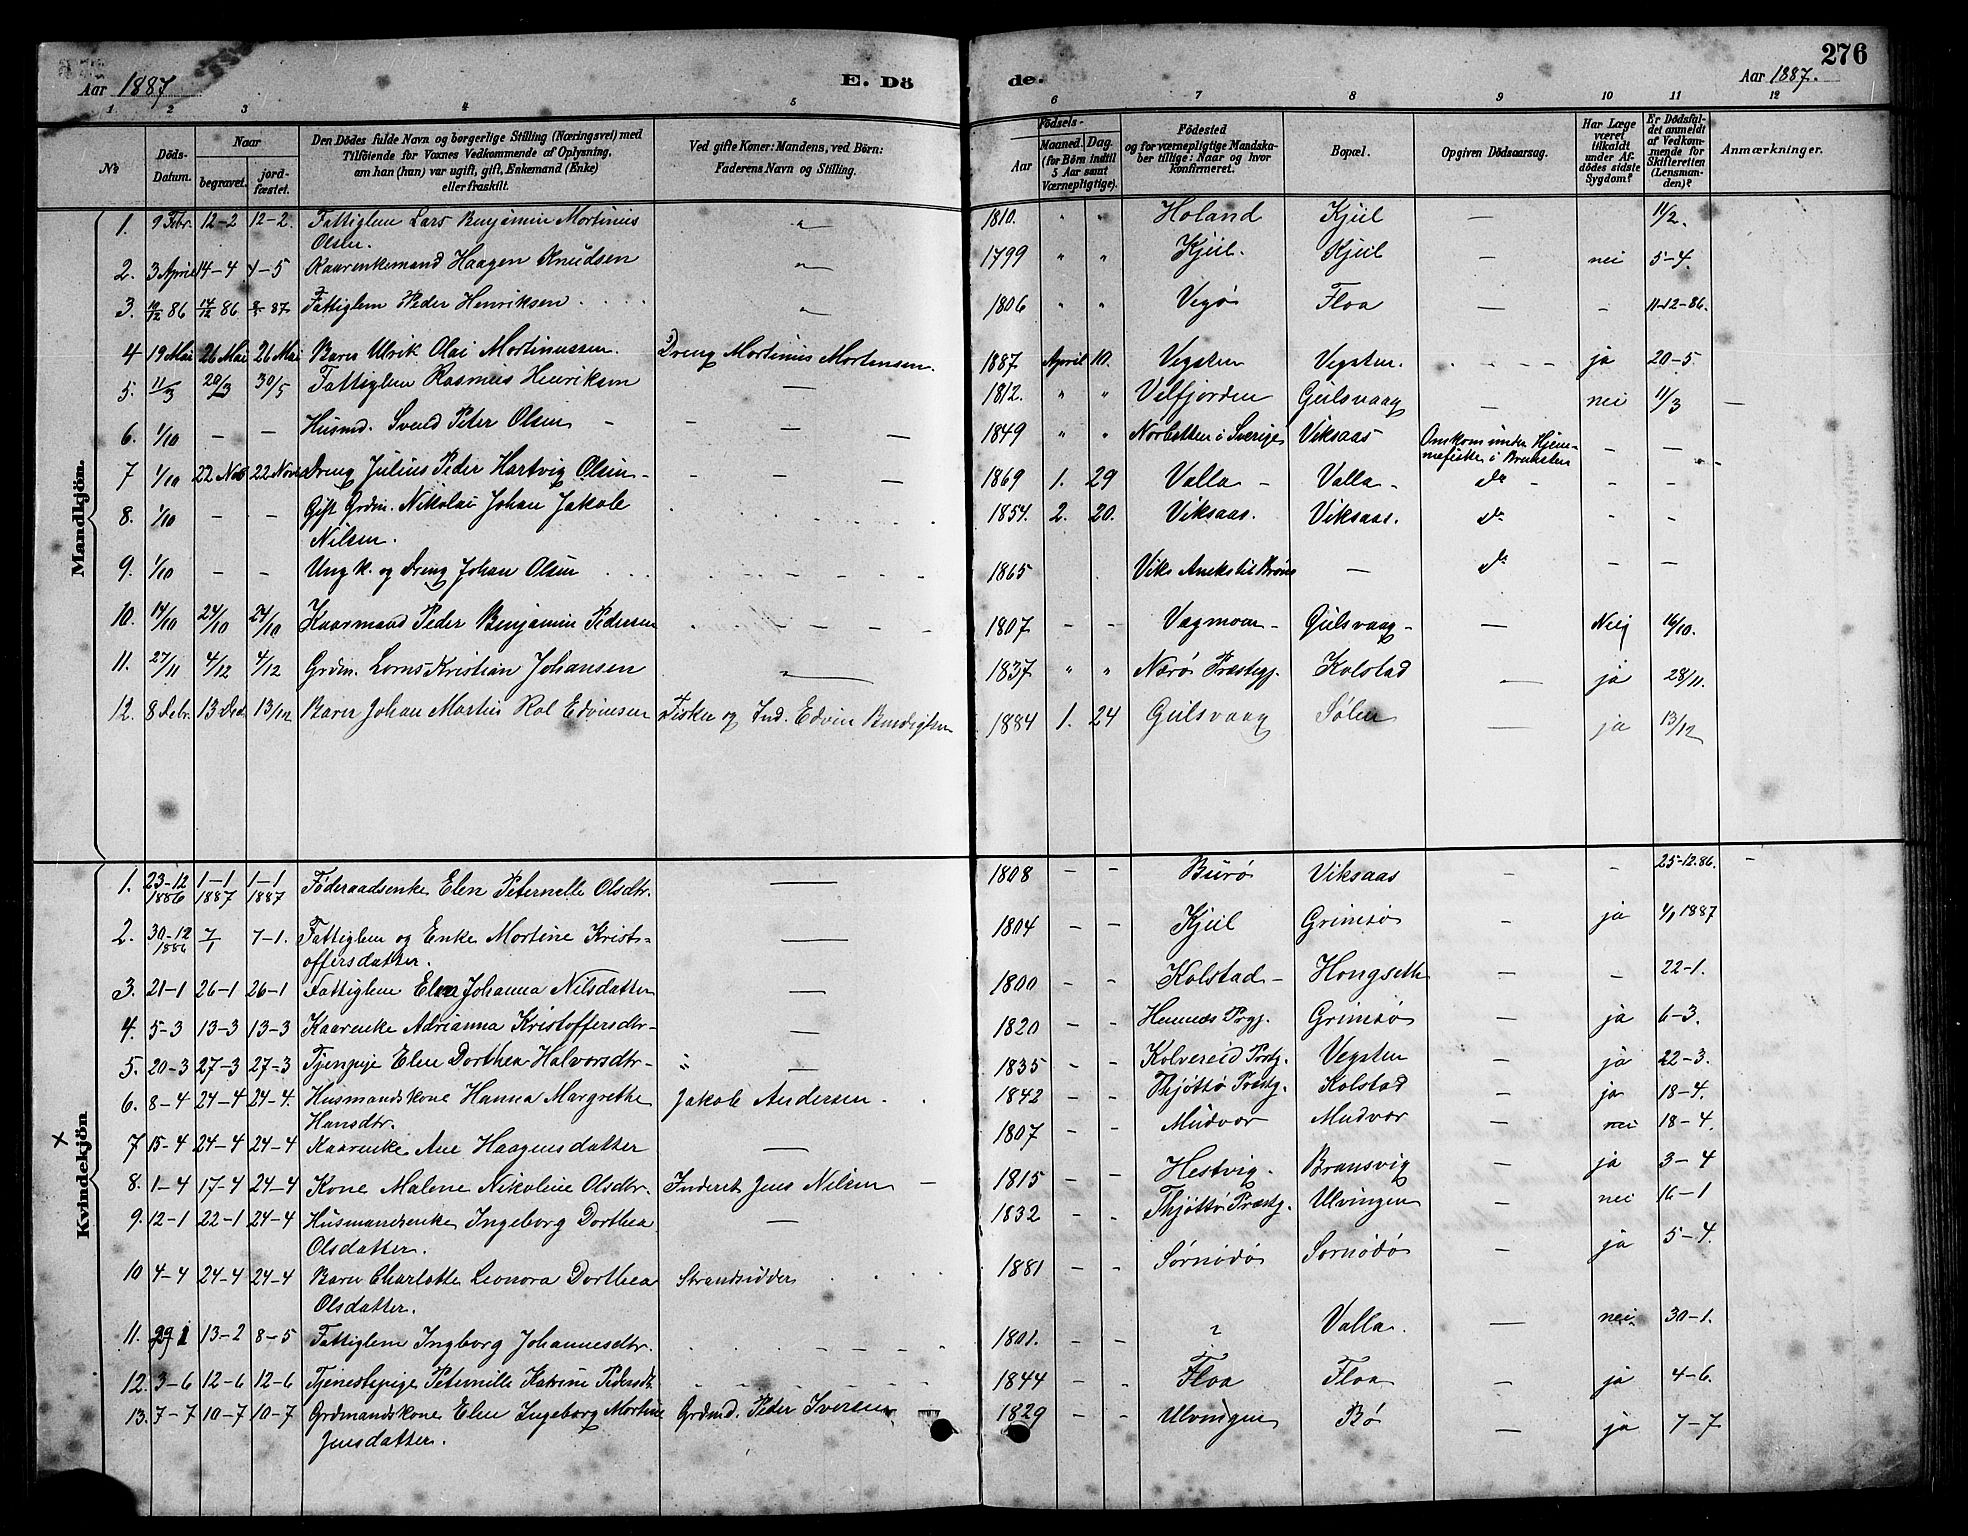 276
Aar 1887
E. Dö
de.
Aar 1887.
1 2 3 4 5 6 7 8 9 10 11 12
No
Döds-
Datum.
Naar
begravet.
jord-
fæstet.
Den Dödes fulde Navn og borgerlige Stilling (Næringsvei) med
Tilföiende for Voxnes Vedkommende af Oplysning,
om han (hun) var ugift, gift, Enkemand (Enke)
eller fraskilt.
Ved gifte Koner: Mandens, ved Börn:
Faderens Navn og Stilling.
Födsels-
Aar
Maaned. Dag.
(for Börn indtil
5 Aar samt
Værnepligtige).
Födested
og for værnepligtige Mandska-
ber tillige: Naar og hvor
konfirmeret.
Bopæl.
Opgiven Dödsaarsag.
Har Læge
været
tilkaldt
under Af-
dödes sidste
Sygdom?
Er Dödsfal-
det anmeldt
af Vedkom-
mende for
Skifteretten
(Lensman-
den)?
Anmærkninger.
Mandkjön.
1. 9 Febr. 12-2 12-2. Fattiglem Lars Benjamin Mortinus 1810. " " Holand Kjul — 11/2.
Olsen.
2. 3 April 14-4 4-5 Kaarenkemand Haagen Knudsen 1799 " " Kjul. Kjul — nei 5-4.
3. 10/12 86 14/12 86 87 Fattiglem Peder Henriksen 1806 " " Vegø Floa — - 11-12-86.
4 19 Mai 26 Mai 26 Mai Barn Ulrik Olai Mortinussen. Dreng Mortinus Mortensen. 1887 April 10. Vegsten Vegsten. ja 20-5
5. 11/3 20/3 30/5 Fattiglem Rasmus Henriksen — 1812. " " Velfjorden Gulsvaag — nei 11/3 —
6. 1/10 — — Husmd. Svend Peter Olsen 1849 " " Norbotten i Sverige Viksaas Omkom under Hjem-
mefiske i — —
7 1/10 22 Nov 22 Nov Dreng Julius Peder Hartvig Olsen 1869 1. 29 Valla Valla do - -
8. 1/10 - - Gift Grdm. Nikolai Johan Jakob 1854. 2. 20. Viksaas. Viksaas. do - -
Nilsen.
9. 1/10 - - Ung k. og Dreng Johan Olsen 1865 Viks Aneks til Brønø — do - -
10. 14/10 24/10 24/10 Kaarmand Peder Benjamin Pedersen 1807 - - Vagmoen Gulsvaag — Neij 16/10.
11. 27/11 4/12 4/12 Grdm. Lorns Kristian Johansen 1837 " " Nærø Præstegj. Kolstad — ja 28/11.
12. 8 Debr. 13 Dec. 13/12 Barn Johan Martin Rol Edvinsen Fisker og Ind. Edvin 1884 1. 24 Gulsvaag Sølen — ja 13/12
Kvindekjön
1. 23-12 1-1 1-1 Føderaadsenke Elen Peternelle Olsdtr. — 1808 - - Burø Viksaas - 25-12.86. -
1886 1887 1887
2. 30-12 7/1 7-1. Fattiglem og Enke Mortine Krist- — 1804 - - Kjul Grimsø - ja 4/1 1887
1886 offersdatter.
3. 21-1 26-1 26-1 Fattiglem Elen Johanna Nilsdatter — 1800 - - Kolstad - Hongseth - - 22-1.
4. 5-3 13-3 13-3 Kaarenke Adrianna Kristoffersdtr — 1820 - - Hemnes Prgj. Grimsø - ja 6-3.
5. 20-3 27-3 27-3 Tjenpige Elen Dorthea Halvorsdtr — 1835 - - Kolvereid Prstgj. Vegsten - ja 22-3.
6. 8-4 24-4 24-4. Husmandskone Hanna Margrethe Jakob Andersen. 1842 - - Thjøttø Præstgj. Kolstad - ja 18-4.
Hansdtr.
7 15-4 24-4 24-4 Kaarenke Ane Haagensdatter — 1807 - - Mudvor Mudvor - nei 18-4.
8. 1-4 17-4 24-4 Kone Malene Nikoline Olsdtr. Inderst Jens Nilsen 1815 - Hestvig. Bransvig - ja 3-4
9. 12-1 22-1 24-4 Husmandsenke Ingeborg Dorthea — 1832 - - Thjøttø Præstgj. Ulvingen - nei 16-1
Olsdatter.
10 4-4 24-4 24-4 Barn Charlotte Leonora Dorthea Strandsidder 1881 - - Sørnødø Sørnødø - ja 5-4.
Olsdatter.
11. 29 1 13-2 8-5 Fattiglem Ingborg Johannesdtr. 1801. - - ? Valla. nei 30-1.
12. 3-6 12-6 12-6 Tjenestepige Peternille Katrine Pedersdt. 1844 - - Floa Floa - ja 4-6.
13. 7-7 10-7 10-7 Grdmandskone Elen Ingeborg Mortine Grdmd. Peder Iversen 1829 - - Ulvingen Bø - ja 7-7
Jensdatter.